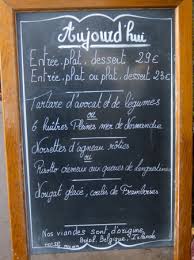 Aujourd'hui
Entrée, plat, dessert 29€
Entrée, plat ou plat, dessert 23€
Tartare d'avocat et de légumes
ou
6 huîtres Pleines mer de Normandie
Noisettes d'agneau rôties
ou
Risotto crémeux aux queues de langoustines
Nougat glacé, coulis de Framboises
Nos viandes sont d'origine
Belgique, Irlande